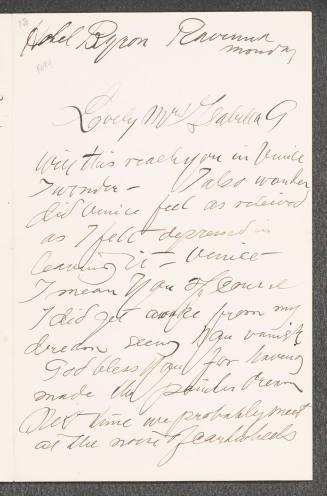 Hotel Byron Ravenna
Monday
Lovely Mrs Isabella G
Will this reach you in Venice
I wonder - I also wonder
did Venice feel as relieved
as I felt depressed in
leaving it - Venice -
I mean you of course
I did get awake from my
dream seeing you vanish
God bless you for having
made the painter dream
Next time we probably meet
at the noise of cartwheels